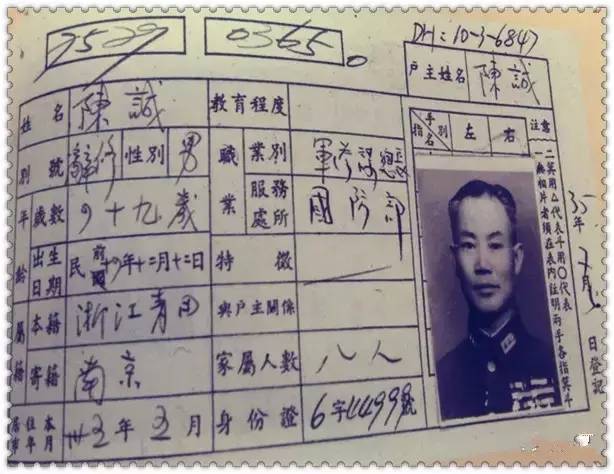 7529 0365
DH:10-3-6847
戶主姓名 陳誠
姓名 陳誠 教育程度
別號 辭修 性別 男 職業 業別 軍 參謀總長
年齡 歲數 四十九歲 服務處所 國防部
出生日期 民前國 年十二月十二日 特徵
屬籍 本籍 浙江青田 與戶主關係
寄籍 南京 家屬人數 八人
居住本市年月 卅五年五月 身份證 6字44999號
指名 手別 左 右
注意
一 箕用△代表斗用〇代表
二 無相片者須在表內註明兩手各指箕斗
35年 月 日登記